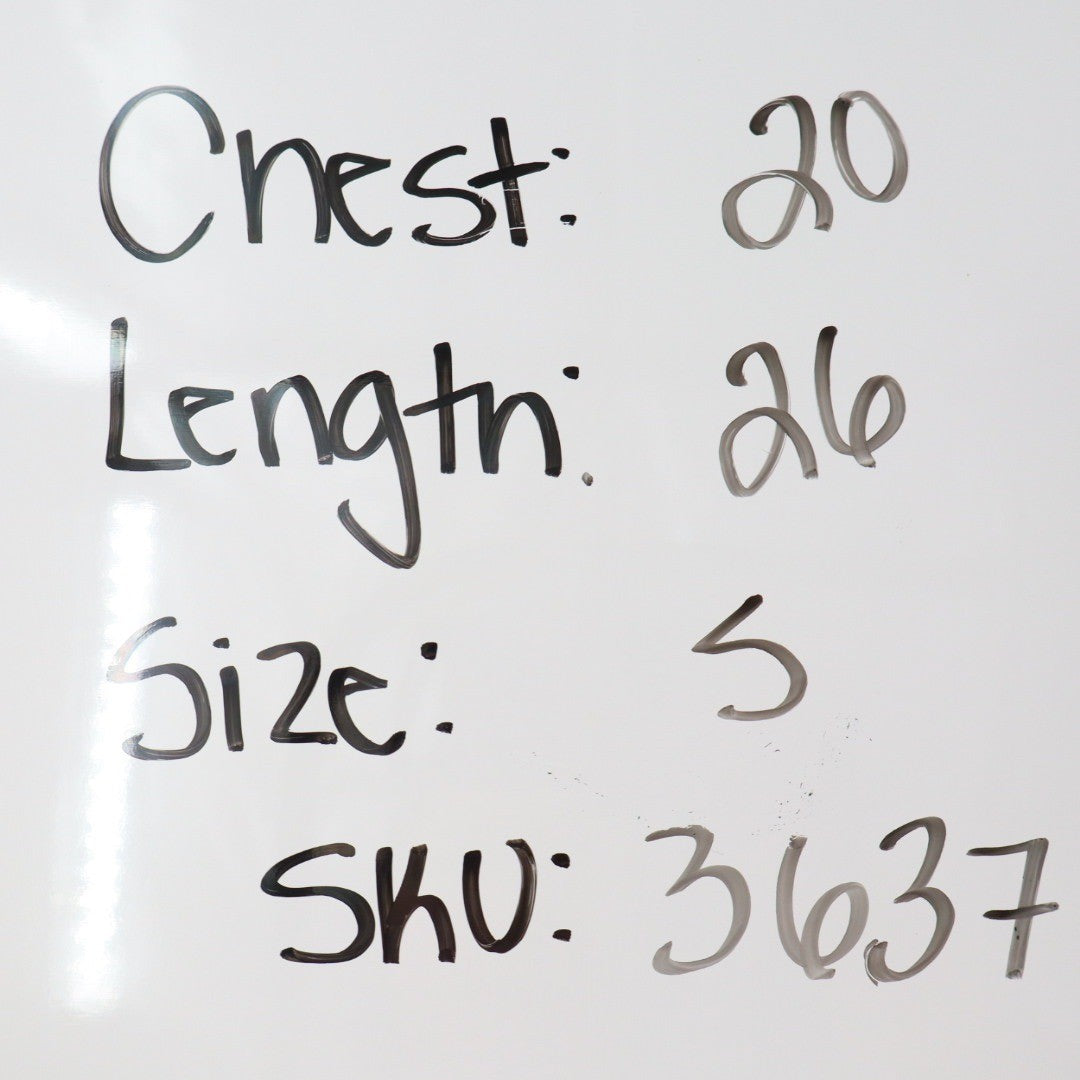 Chest: 20
Length: 26
Size: S
SKU: 3637